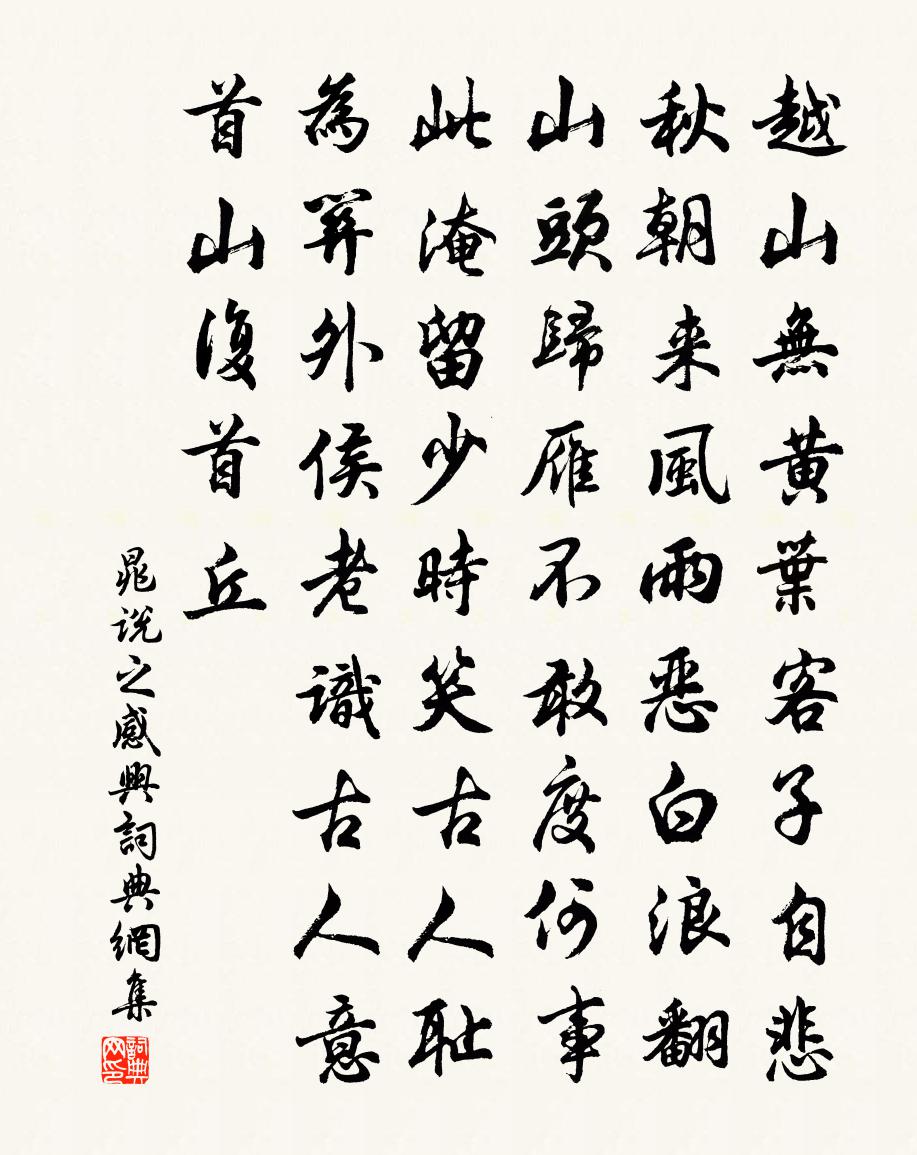 越山無黃葉客子自悲
秋朝来風雨惡白浪翻
山頭歸雁不敢度何事
此淹留少時笑古人恥
為關外侯老識古人意
首山復首丘
晁說之感興詞典網集
詞典网印